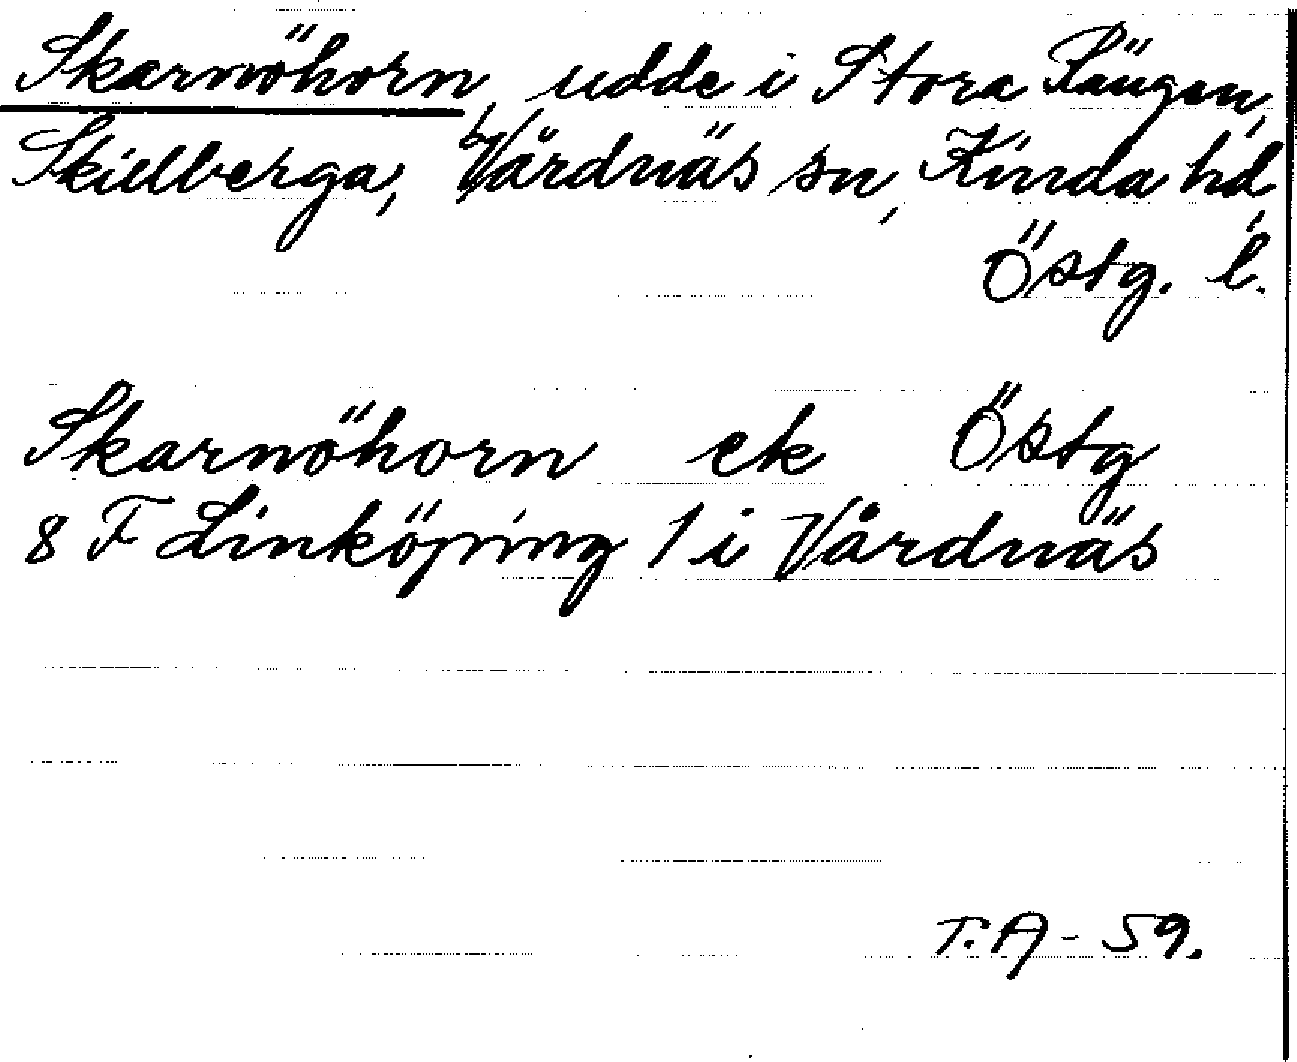 Skarnöhorn, udde i Stora Rängen,
Skillberga, Vårdnäs sn, Kinda hd,
Östg. l.
Skarnöhorn ek Östg
8 F Linköping 1 i Vårdnäs
T.A-59.